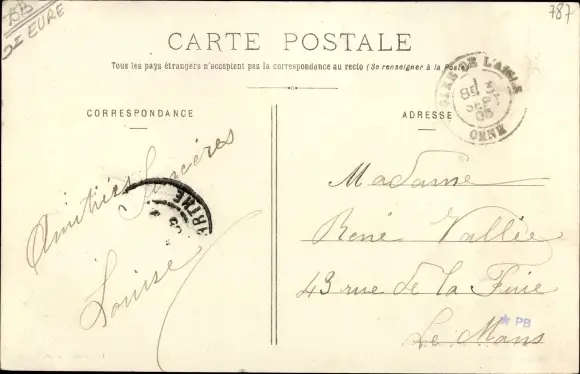 BB
EURE
787
CARTE POSTALE
Tous les pays étrangers n'acceptent pas la correspondance au recto (Se renseigner à la Poste)
CORRESPONDANCE
ADRESSE
GARE DE L'AIGLE
SEPT
05
ORNE
Amitiés Sincères
Louise
SARTHE
05
Madame
René Vallée
43 rue de la
Le Mans
* PB